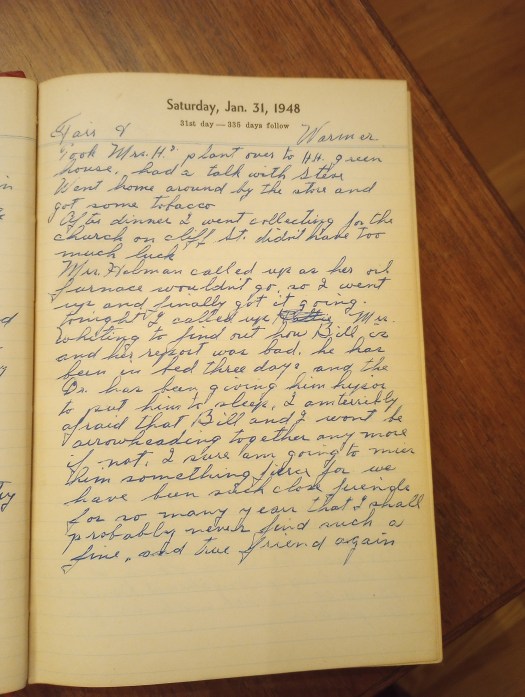 Saturday, Jan. 31, 1948
31st day—335 days follow
Fair & Warmer.
Took Mrs. H's plant over to H.H. green
house, had a talk with Steve
Went home around by the store and
got some tobacco
After dinner I went collecting for the
church on cliff St. didn't have too
much luck
Mrs. Holman called up as her oil
furnace wouldn't go, so I went
up and finally got it going.
tonight I called up Mrs.
Whiting to find out how Bill is
and her report was bad. he has
been in bed three days and the
Dr. has been giving him
to put him to sleep, I am terribly
afraid that Bill and I wont be
arrowheading together any more
if not, I sure am going to miss
him something fierce for we
have been such close friends
for so many years that I shall
probably never find such a
fine, and true friend again